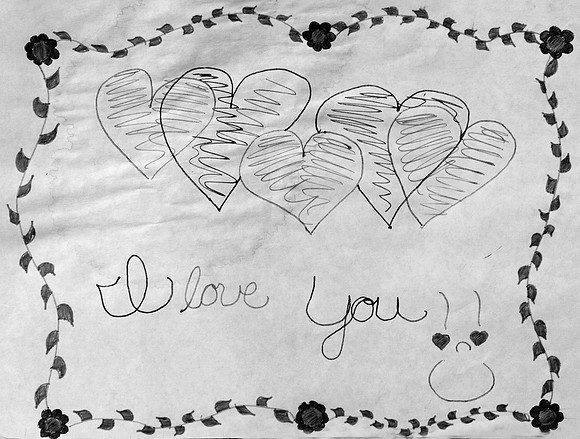 I love You!!